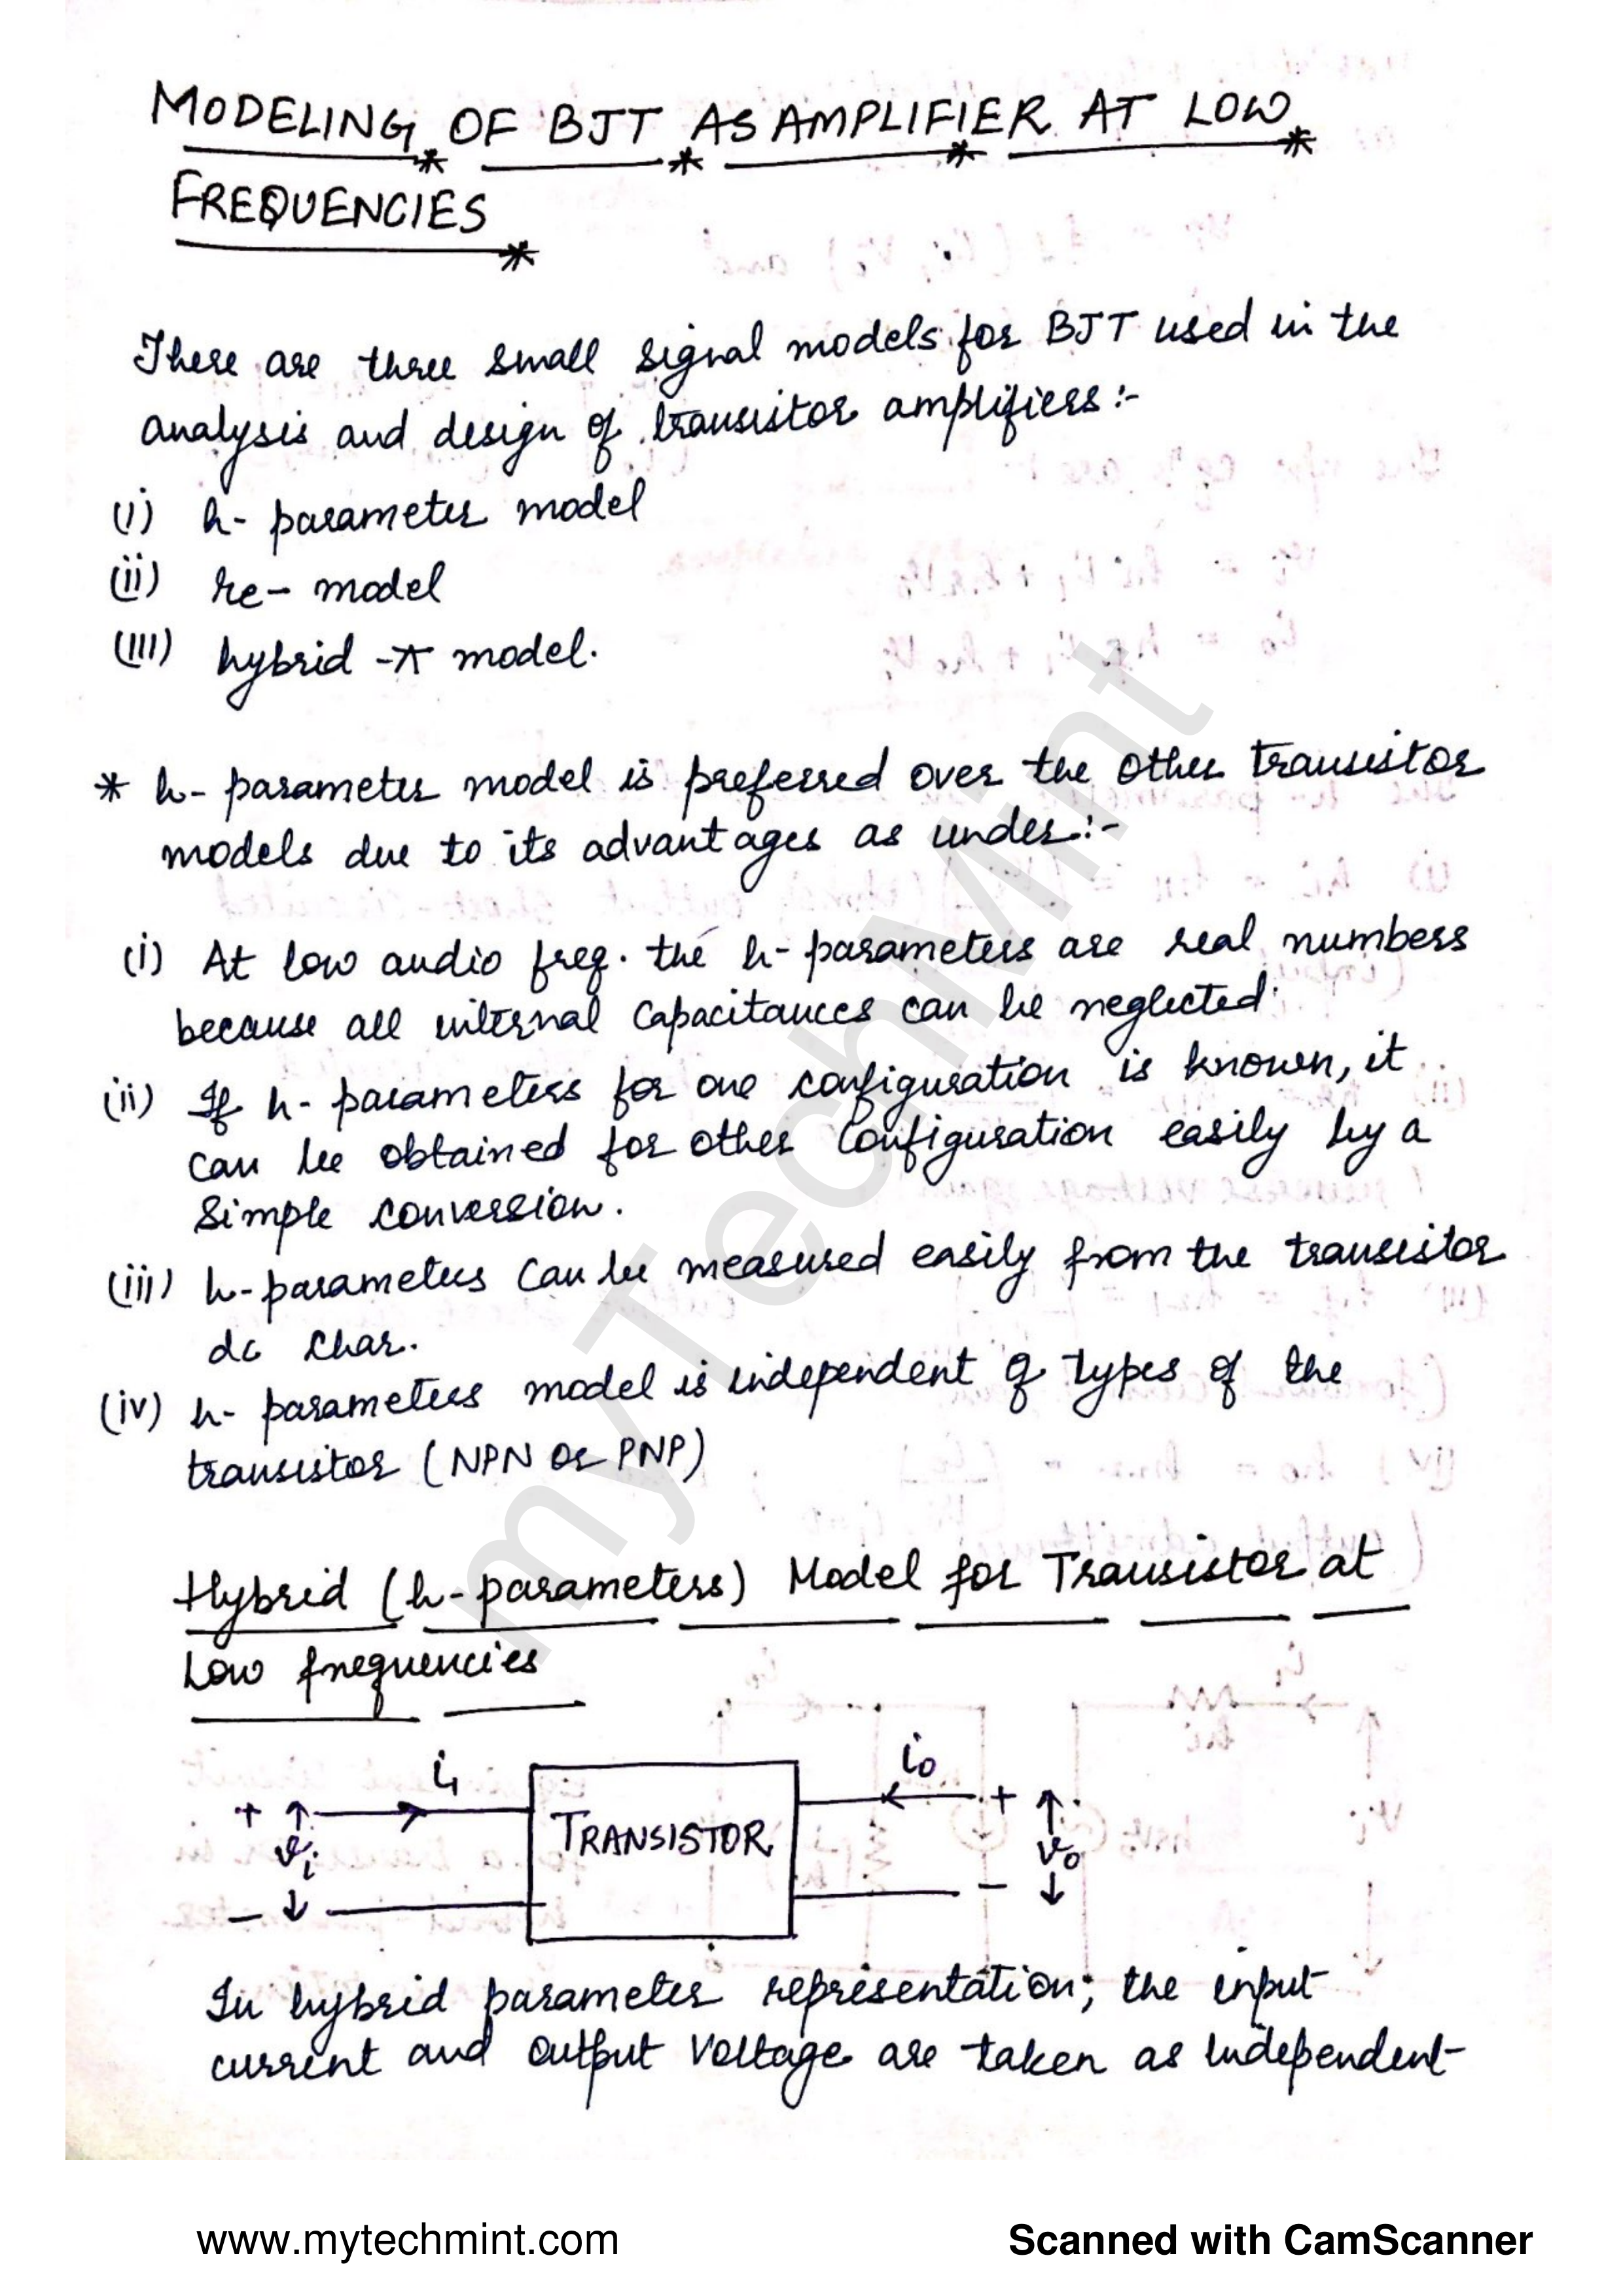 MODELING OF BJT AS AMPLIFIER AT LOW
FREQUENCIES
There are three small signal models for BJT used in the
analysis and design of transistor amplifiers :-
(i) h- parameter model
(ii) re- model
(iii) hybrid -π model.
* h- parameter model is preferred over the other transistor
models due to its advantages as under:-
(i) At low audio freq. the h- parameters are real numbers
because all internal capacitances can be neglected.
(ii) If h- parameters for one configuration is known, it
can be obtained for other configuration easily by a
simple conversion.
(iii) h-parameters can be measured easily from the transistor
dc char.
(iv) h- parameters model is independent of types of the
transistor (NPN or PNP)
Hybrid (h-parameters) Model for Transistor at
Low frequencies
i₁
i₀
+
TRANSISTOR
+
vᵢ
v₀
-
-
In hybrid parameter representation, the input
current and output voltage are taken as independent
myTechMint
www.mytechmint.com
Scanned with CamScanner